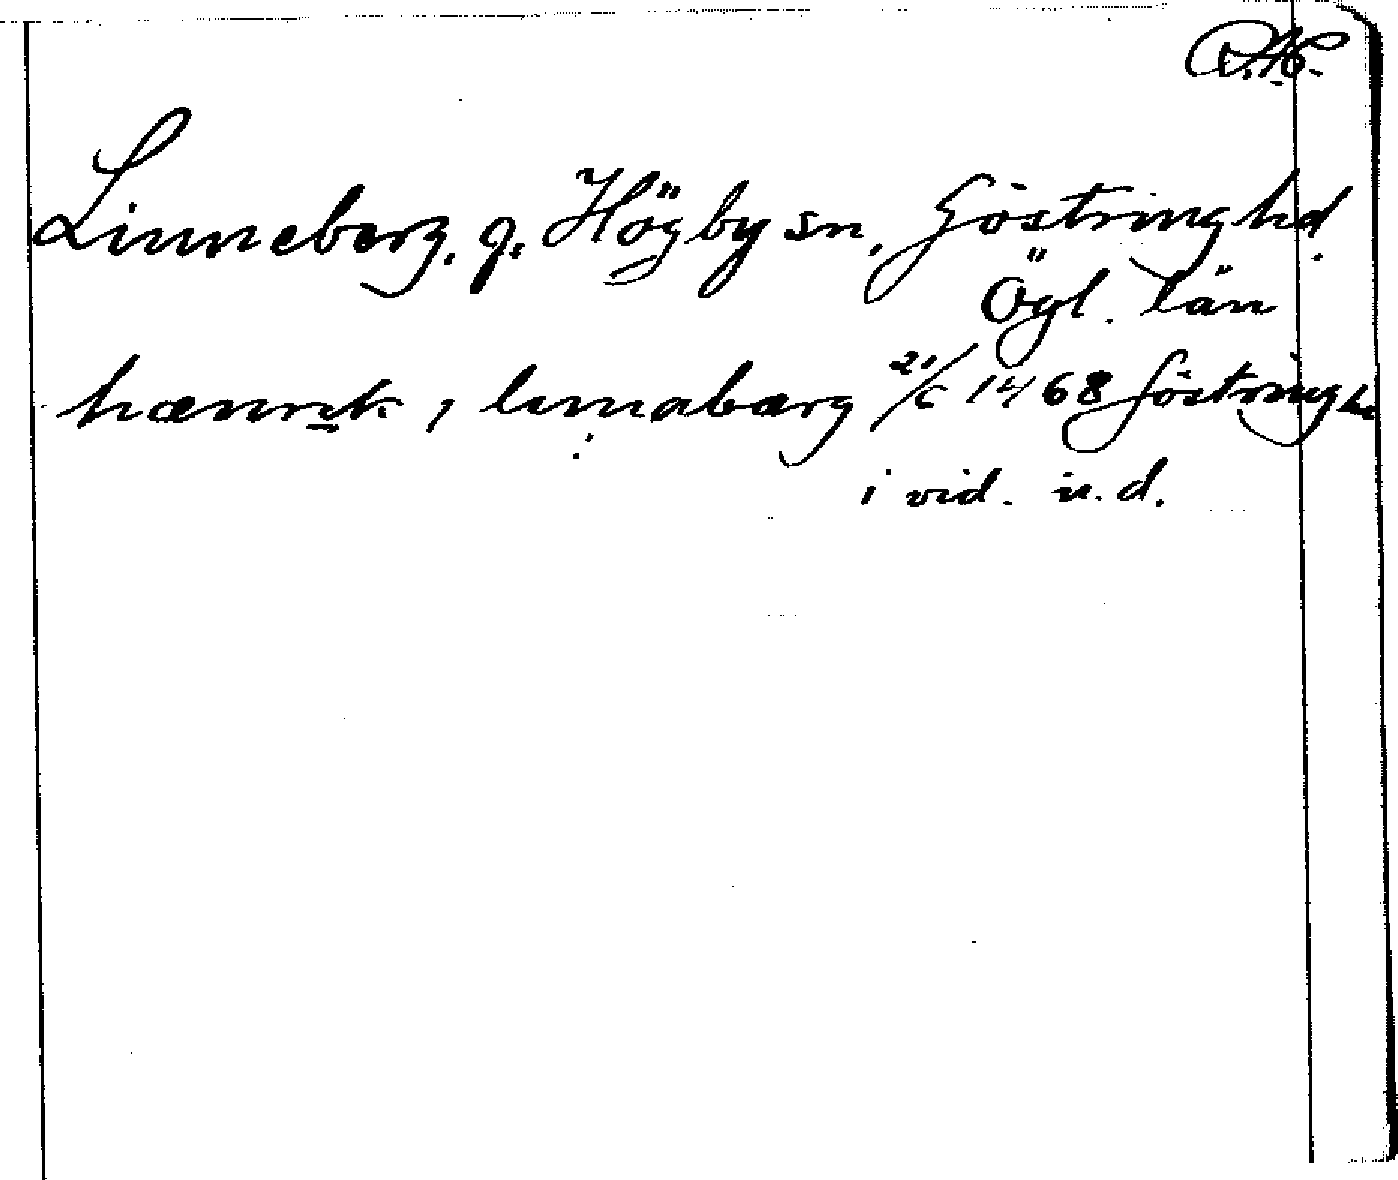 Linneberg. g. Högby sn, Göstring hd.
Ögl. län
hænrik i linnabærg 21/6 1468 Göstring hd
i vid. u.d.